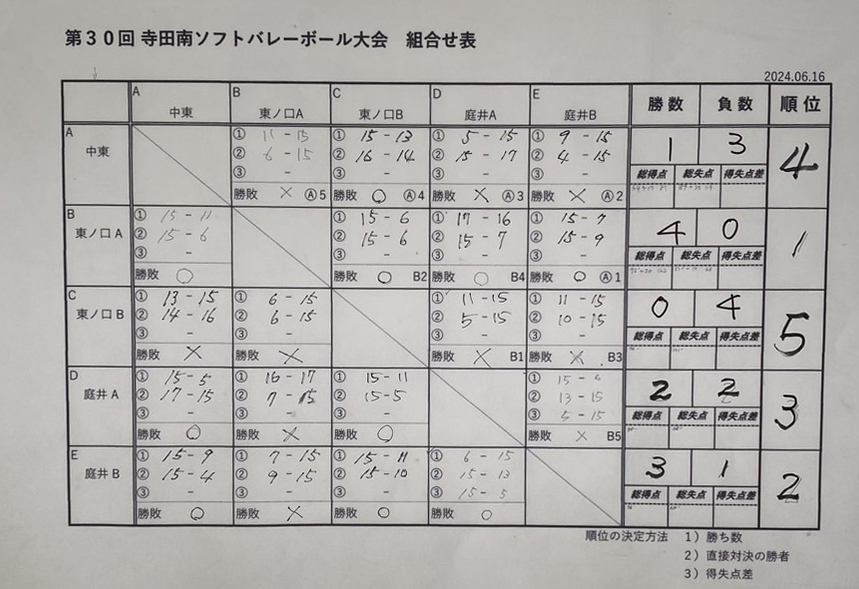 第30回 寺田南ソフトバレーボール大会 組合せ表
2024.06.16
A 中東 B 東ノ口A C 東ノ口B D 庭井A E 庭井B 勝数 負数 順位
A 中東
① 11-15 ① 15-13 ① 5-15 ① 9-15
② 6-15 ② 16-14 ② 15-17 ② 4-15
③ - ③ - ③ - ③ -
勝敗 × Ⓐ5 勝敗 ○ Ⓐ4 勝敗 × Ⓐ3 勝敗 × Ⓐ2
1 3 4
総得点 総失点 得失点差
B 東ノ口A
① 15-11 ① 15-6 ① 17-16 ① 15-7
② 15-6 ② 15-6 ② 15-7 ② 15-9
③ - ③ - ③ - ③ -
勝敗 ○ 勝敗 ○ B2 勝敗 ○ B4 勝敗 ○ Ⓐ1
4 0 1
総得点 総失点 得失点差
C 東ノ口B
① 13-15 ① 6-15 ① 11-15 ① 11-15
② 14-16 ② 6-15 ② 5-15 ② 10-15
③ - ③ - ③ - ③ -
勝敗 × 勝敗 × 勝敗 × B1 勝敗 × B3
0 4 5
総得点 総失点 得失点差
D 庭井A
① 15-5 ① 16-17 ① 15-11 ① 15-6
② 17-15 ② 7-15 ② 15-5 ② 13-15
③ - ③ - ③ - ③ 5-15
勝敗 ○ 勝敗 × 勝敗 ○ 勝敗 × B5
2 2 3
総得点 総失点 得失点差
E 庭井B
① 15-9 ① 7-15 ① 15-11 ① 6-15
② 15-4 ② 9-15 ② 15-10 ② 15-13
③ - ③ - ③ - ③ 15-5
勝敗 ○ 勝敗 × 勝敗 ○ 勝敗 ○
3 1 2
総得点 総失点 得失点差
順位の決定方法 1）勝ち数
2）直接対決の勝者
3）得失点差